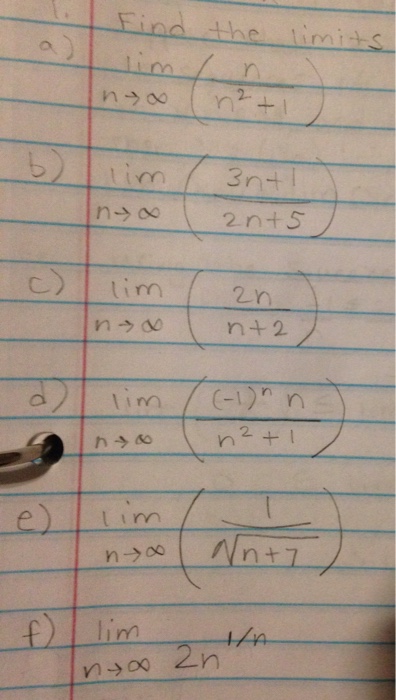 1. Find the limits
a) lim n→∞ (n / (n² + 1))
b) lim n→∞ ((3n+1) / (2n+5))
c) lim n→∞ (2n / (n+2))
d) lim n→∞ ((-1)ⁿ n / (n² + 1))
e) lim n→∞ (1 / √(n+7))
f) lim n→∞ 2n^(1/n)